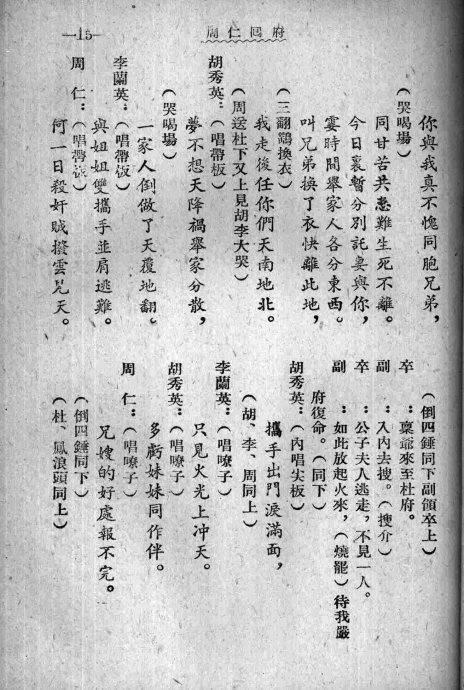 周仁囘府
—15—
你與我真不愧同胞兄弟，
（哭喝場）
同甘苦共患難生死不離。
今日裏暫分別託妻與你，
霎時間舉家人各分東西。
叫兄弟換了衣快離此地，
（三翻鷂換衣）
我走後任你們天南地北。
（周送杜下又上見胡李大哭）
胡秀英：（唱帶板）
夢不想天降禍舉家分散，
（哭喝場）
一家人倒做了天覆地翻。
李蘭英：（唱帶板）
與姐姐雙攜手並肩逃難。
周　仁：（唱帶板）
何一日殺奸賊撥雲見天。
（倒四錘同下副領卒上）
卒　：稟爺來至杜府。
副　：入內去搜。（搜介）
卒　：公子夫人逃走，不見一人。
副　：如此放起火來，（燒罷）待我嚴
府復命。（同下）
胡秀英：（內唱尖板）
攜手出門淚滿面，
（胡、李、周同上）
李蘭英：（唱嘹子）
只見火光上冲天。
胡秀英：（唱嘹子）
多虧妹妹同作伴。
周　仁：（唱嘹子）
兄嫂的好處報不完。
（倒四錘同下）
（杜、鳳浪頭同上）